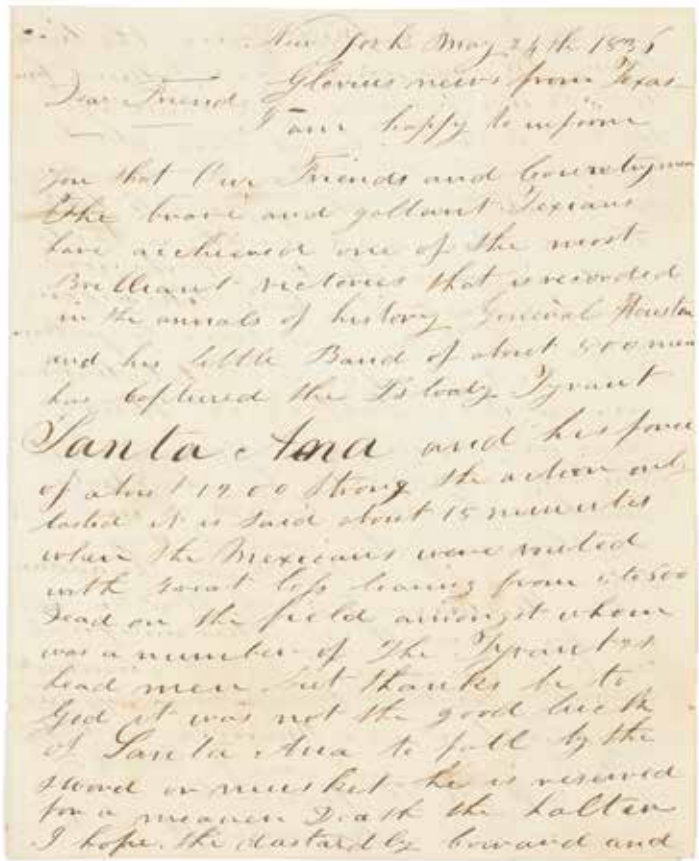 New York May 24th 1836
Glorius news from Texas
Dear Friend
I am happy to inform
you that Our Friends and Countrymen
The brave and gallant Texians
have achieved one of the most
Brilliant victories that is recorded
in the annals of history General Houston
and his little Band of about 500 men
has captured the Bloody Tyrant
Santa Ana and his force
of about 1200 Strong the action
lasted it is said about 15 minutes
when the Mexicans were routed
with Great loss leaving from 500
Dead on the field amongst whom
was a number of The Tyrants
head men but thanks be to
God it was not the good luck
of Santa Ana to fall by the
sword or musket he is reserved
for a meaner Death the halter
I hope. the dastardly Coward and